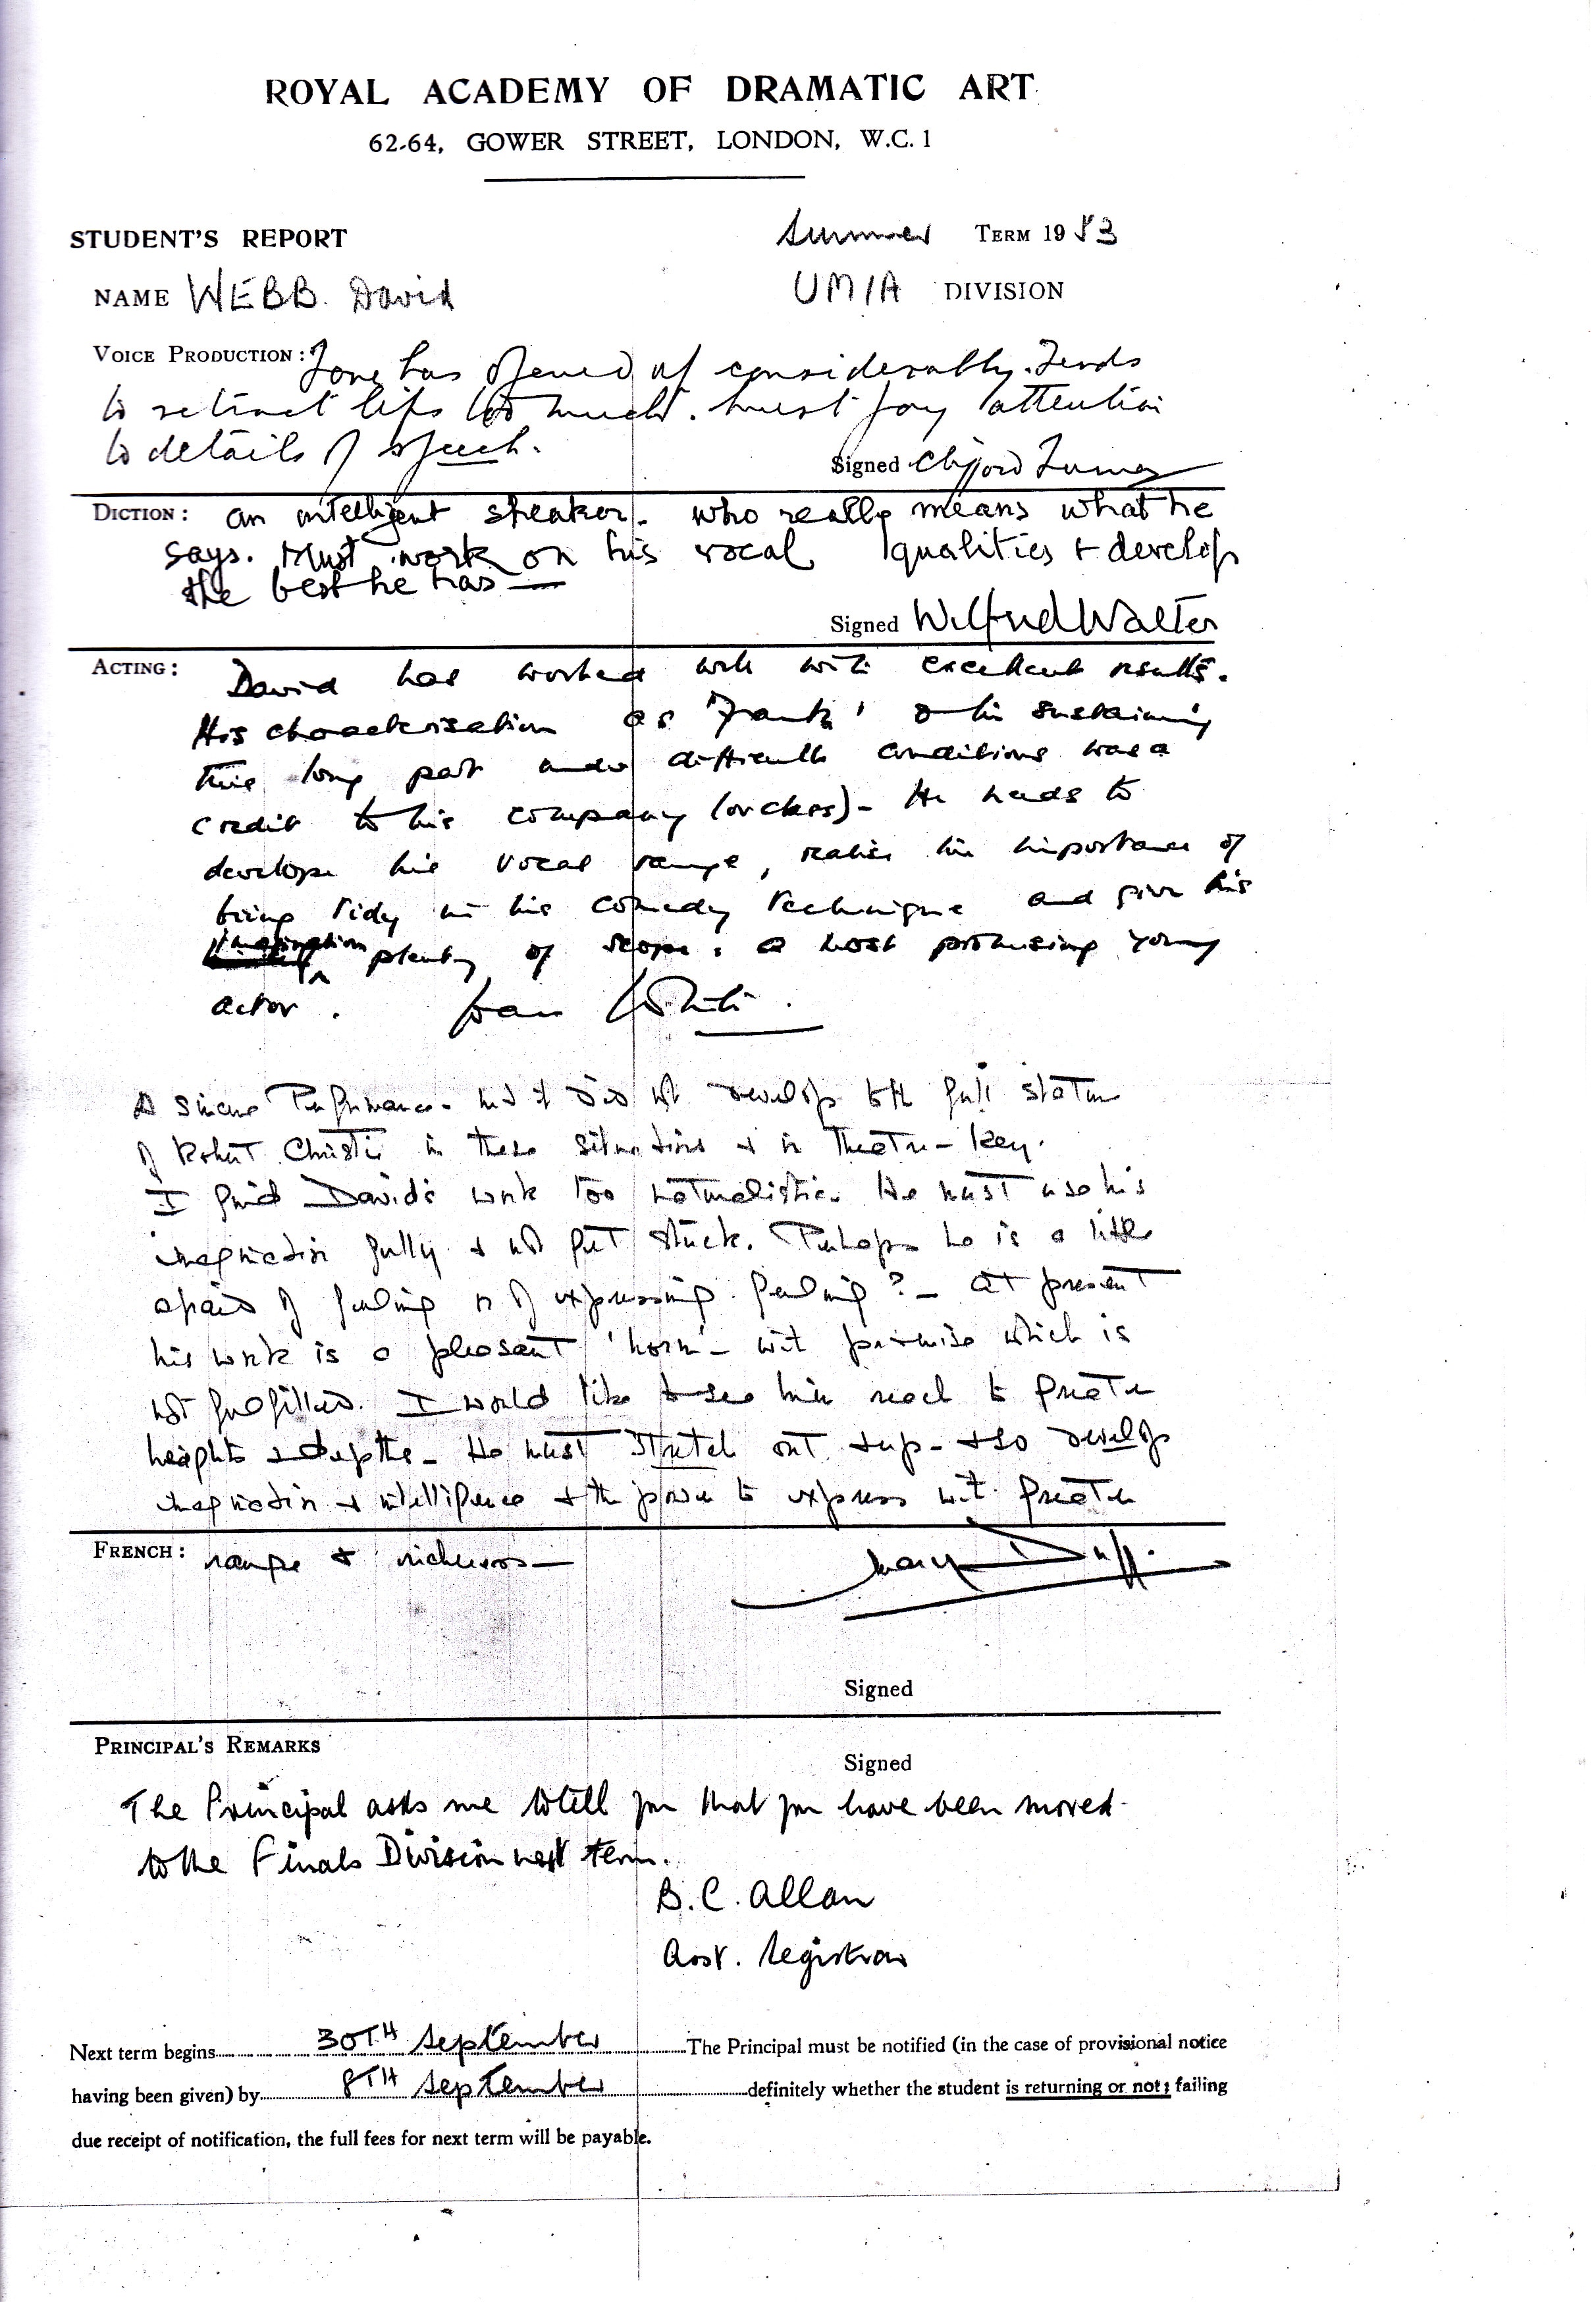 ROYAL ACADEMY OF DRAMATIC ART
62-64, GOWER STREET, LONDON, W.C. 1
STUDENT'S REPORT Summer TERM 1953
NAME WEBB. David UM/A DIVISION
VOICE PRODUCTION: Tone has opened up considerably. Tends
to retract lips too much. Must pay attention
to details of speech.
Signed Clifford Turner
DICTION: an intelligent speaker. who really means what he
says. Must work on his vocal qualities & develop
the best he has —
Signed Wilfrid Walter
ACTING: David has worked well with excellent results.
His characterisation as 'Frank' & his sustaining
this long part under difficult conditions was a
credit to his company (or class) - He needs to
develope his vocal range, realise the importance of
being tidy in his comedy technique and give his
imagination plenty of scope. a most promising young
actor. Joan White.
A sincere Performance - but it did not develop to the full stature
of Robert Christie in these situations & in Theatre - key.
I find David's work too naturalistic. He must use his
imagination fully & not get stuck. Perhaps he is a little
afraid of feeling or of expressing feeling? - At present
his work is a pleasant 'horn' - with promise which is
not fulfilled. I would like to see him reach to greater
heights & depths - He must stretch out & up - & so develop
imagination & intelligence & the power to express with greater
FRENCH: range & richness —
Mary Duff.
Signed
PRINCIPAL'S REMARKS
Signed
The Principal asks me to tell you that you have been moved
to the Finals Division next term.
B. C. Allan
Asst. Registrar
Next term begins 30TH September The Principal must be notified (in the case of provisional notice
having been given) by 8TH September definitely whether the student is returning or not; failing
due receipt of notification, the full fees for next term will be payable.